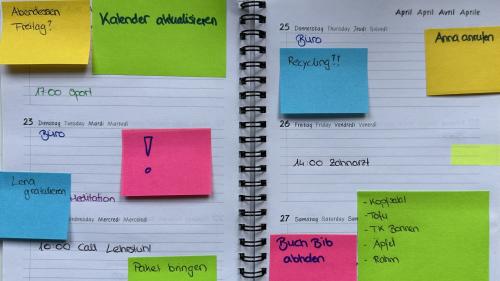 Abendessen
Freitag?
Kalender aktualisieren
17:00 Sport
23 Dienstag Tuesday Mardi Martedì
Büro
!
Lena
gratulieren
Meditation
Wednesday Mercredi Mercoledì
10:00 Call Lehrstuhl
Paket bringen
April April Avril Aprile
25 Donnerstag Thursday Jeudi Giovedì
Büro
Anna anrufen
Recycling?!
26 Freitag Friday Vendredi Venerdì
14:00 Zahnarzt
27 Samstag Saturday
Buch Bib
abholen
- Kopfsalat
- Tofu
- TK Bohnen
- Äpfel
- Rahm